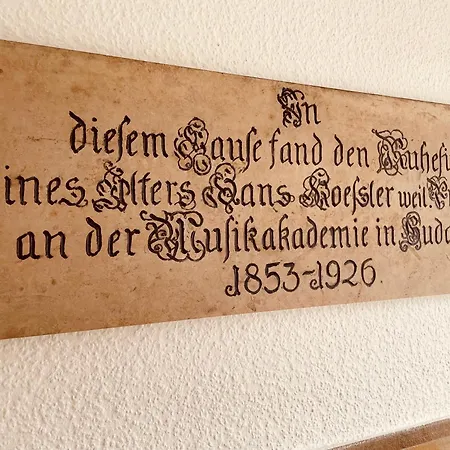 In
diesem Hause fand den Ruhesi
ines Alters Hans Koessler weil Pr
an der Musikakademie in Buda
1853-1926.